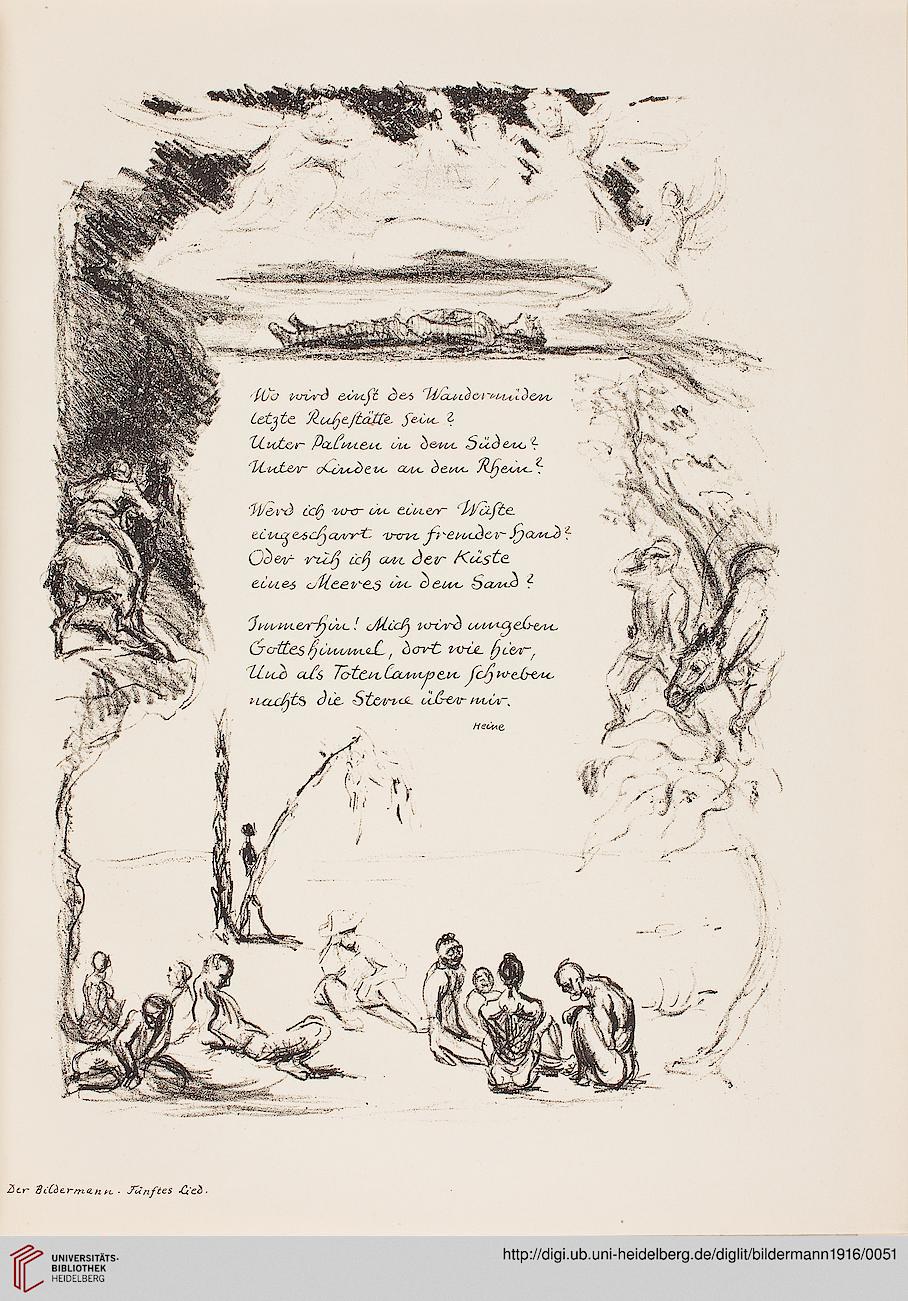 Wo wird einst des Wandermüden
letzte Ruhestätte sein?
Unter Palmen in dem Süden?
Unter Linden an dem Rhein?
Werd ich wo in einer Wüste
eingescharrt von fremder Hand?
Oder ruh ich an der Küste
eines Meeres in dem Sand?
Immerhin! Mich wird umgeben
Gotteshimmel, dort wie hier,
Und als Totenlampen schweben
nachts die Sterne über mir.
Heine
Der Bildermann. Fünftes Lied.
UNIVERSITÄTS-
BIBLIOTHEK
HEIDELBERG
http://digi.ub.uni-heidelberg.de/diglit/bildermann1916/0051